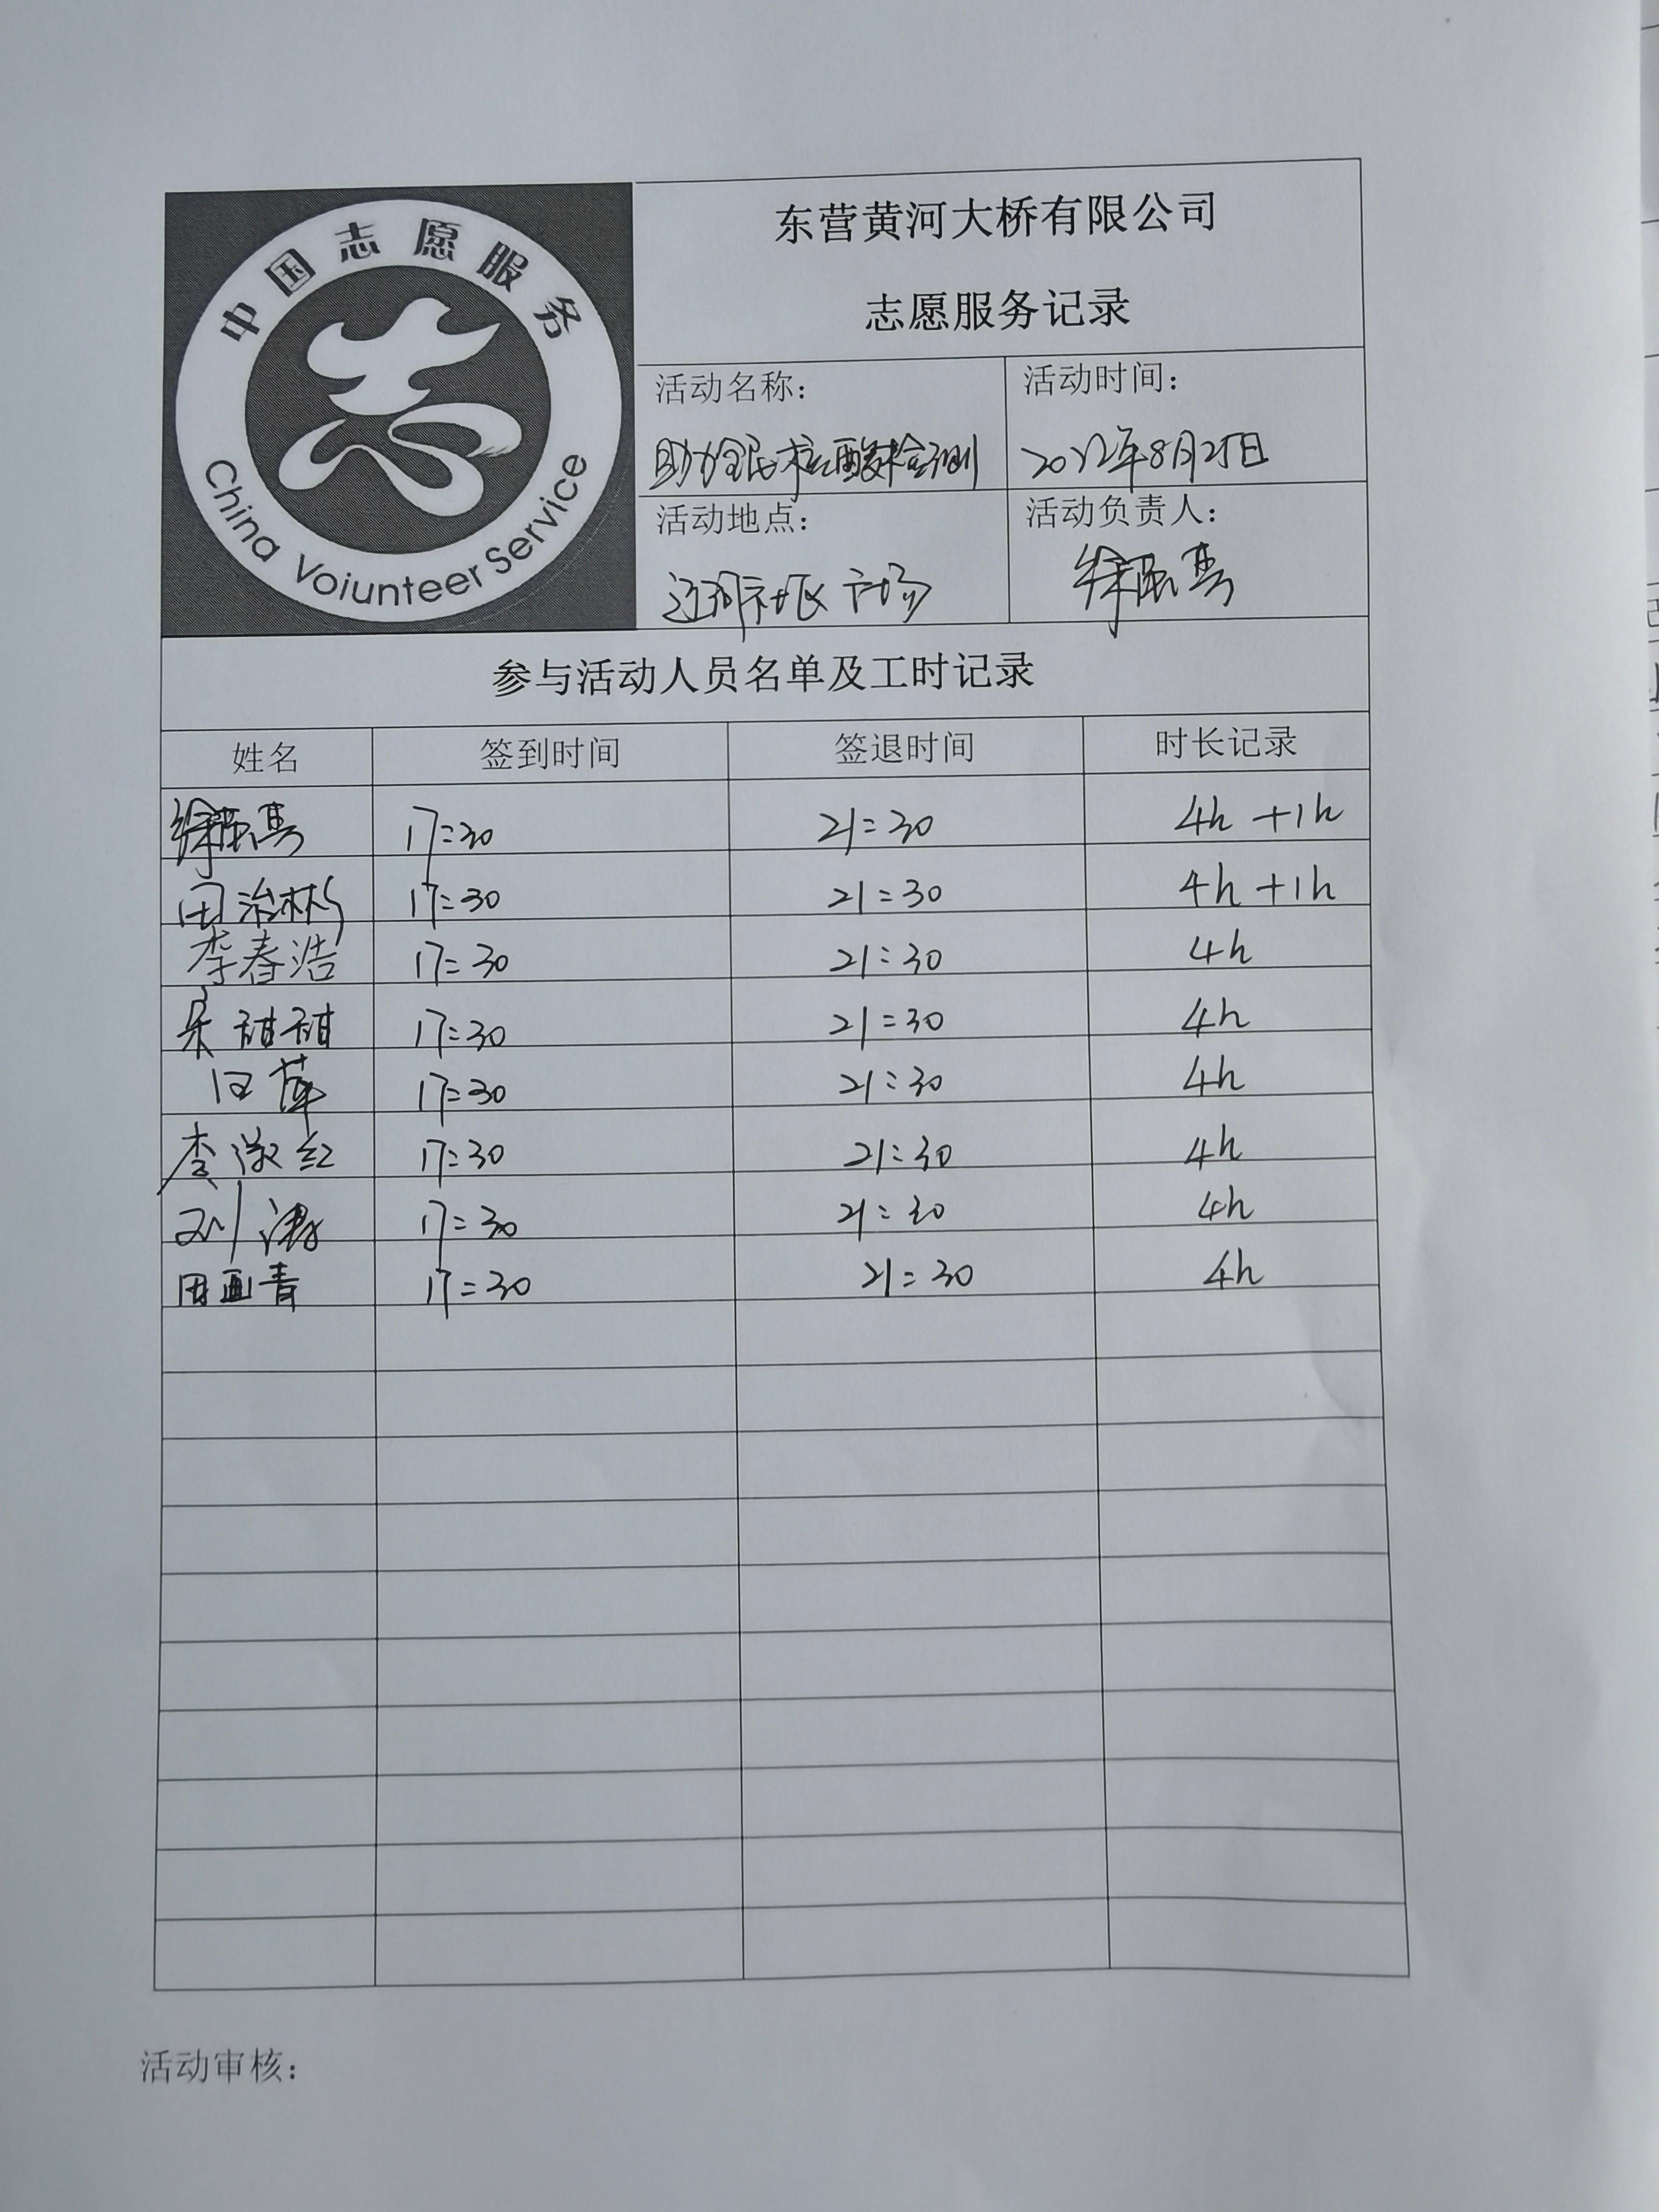 中国志愿服务
China Voiunteer Service
东营黄河大桥有限公司
志愿服务记录
活动名称：
活动时间：
助力全民核酸检测
2022年8月25日
活动地点：
活动负责人：
社区广场
参与活动人员名单及工时记录
姓名 签到时间 签退时间 时长记录
17:30 21:30 4h +1h
田治彬 17:30 21:30 4h +1h
李春浩 17:30 21:30 4h
甜甜 17:30 21:30 4h
17:30 21:30 4h
李淑红 17:30 21:30 4h
刘涛 17:30 21:30 4h
青 17:30 21:30 4h
活动审核：